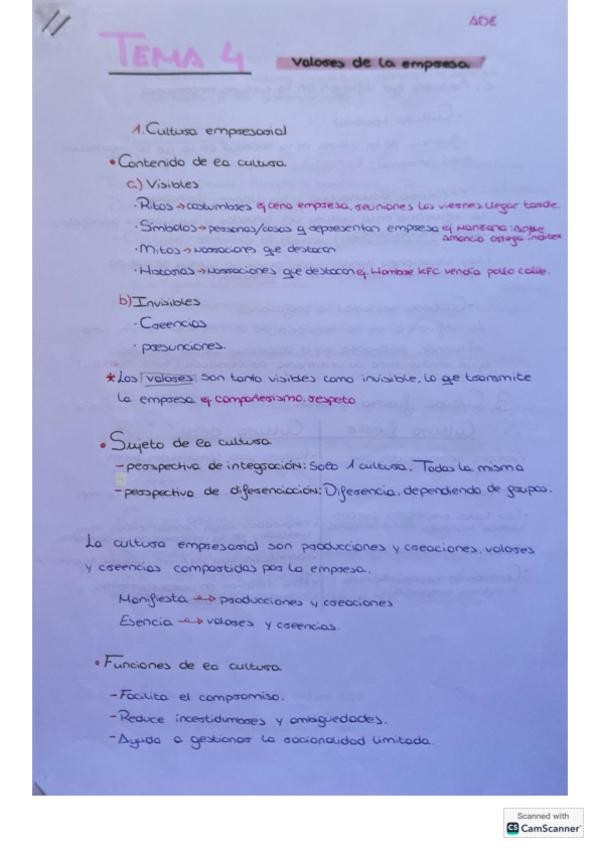 ADE
TEMA 4 Valores de la empresa
1. Cultura empresarial
• Contenido de la cultura
a) Visibles
· Ritos → costumbres ej cena empresa, reuniones los viernes, llegar tarde.
· Símbolos → personas/cosas q representan empresa ej Manzana: Apple
Amancio ortega: inditex
· Mitos → narraciones que destacan
· Historias → narraciones que destacan ej Hombre KFC vendía pollo calle.
b) Invisibles
· Creencias
· presunciones.
* Los valores son tanto visibles como invisible, lo qe transmite
la empresa ej compañerismo, respeto
• Sujeto de la cultura
- perspectiva de integración: Solo 1 cultura. Todas la misma
- perspectiva de diferenciación: Diferencia, dependiendo de grupos.
La cultura empresarial son producciones y creaciones, valores
y creencias compartidas por la empresa.
Manifiesta → producciones y creaciones
Esencia → valores y creencias.
• Funciones de la cultura
- Facilita el compromiso.
- Reduce incertidumbres y ambigüedades.
- Ayuda a gestionar la racionalidad limitada.
Scanned with
CS CamScanner